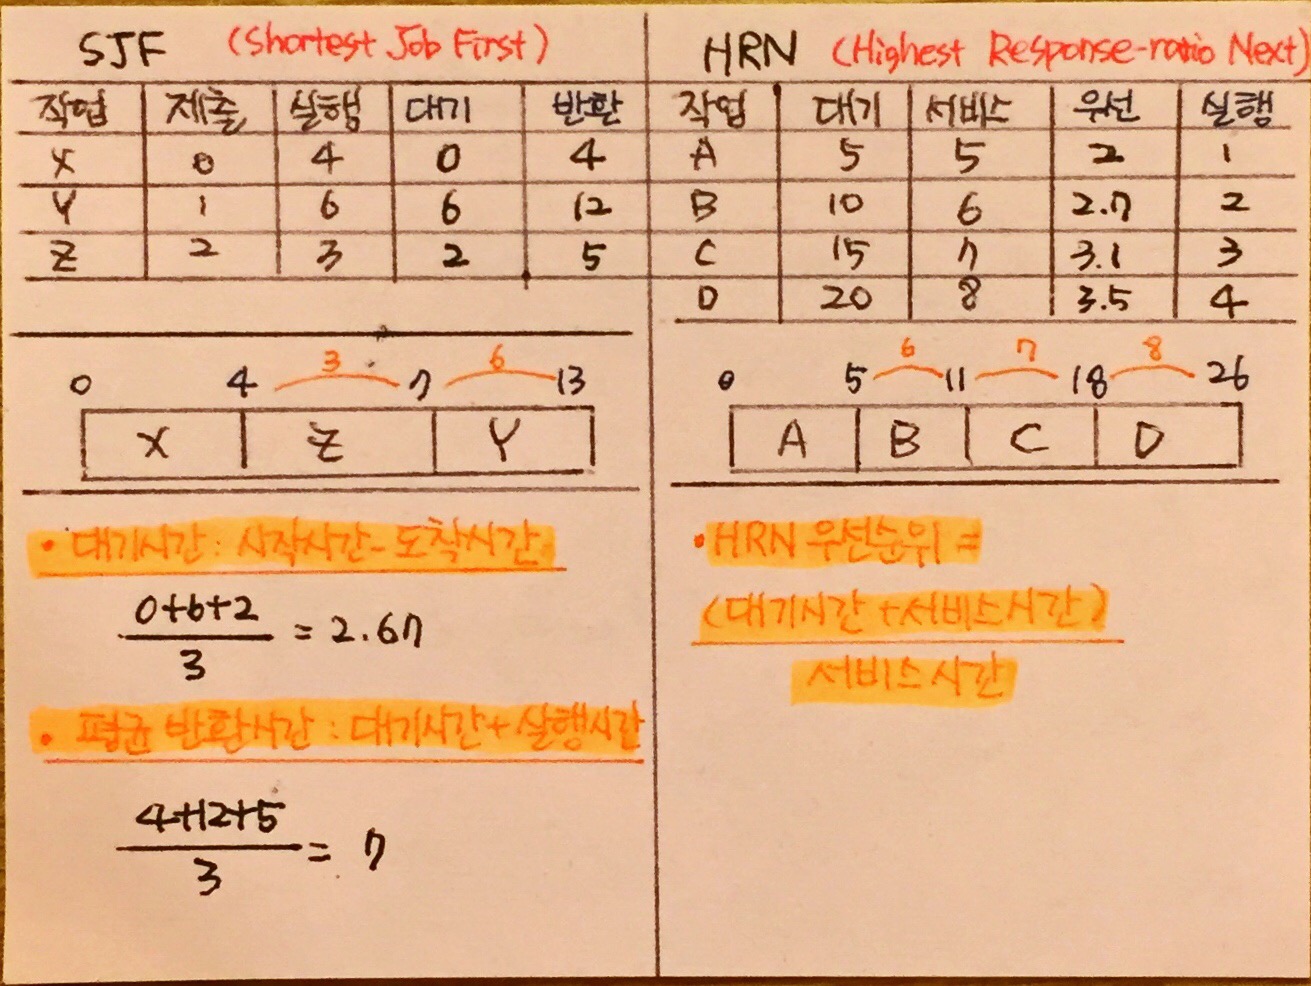 SJF (Shortest Job First)
작업 제출 실행 대기 반환
X 0 4 0 4
Y 1 6 6 12
Z 2 3 2 5
3 6
0 4 7 13
X Z Y
• 대기시간 : 시작시간 - 도착시간
0+6+2
3
= 2.67
• 평균 반환시간 : 대기시간 + 실행시간
4+12+5
3
= 7
HRN (Highest Response-ratio Next)
작업 대기 서비스 우선 실행
A 5 5 2 1
B 10 6 2.7 2
C 15 7 3.1 3
D 20 8 3.5 4
6 7 8
0 5 11 18 26
A B C D
• HRN 우선순위 =
(대기시간 + 서비스시간)
서비스시간